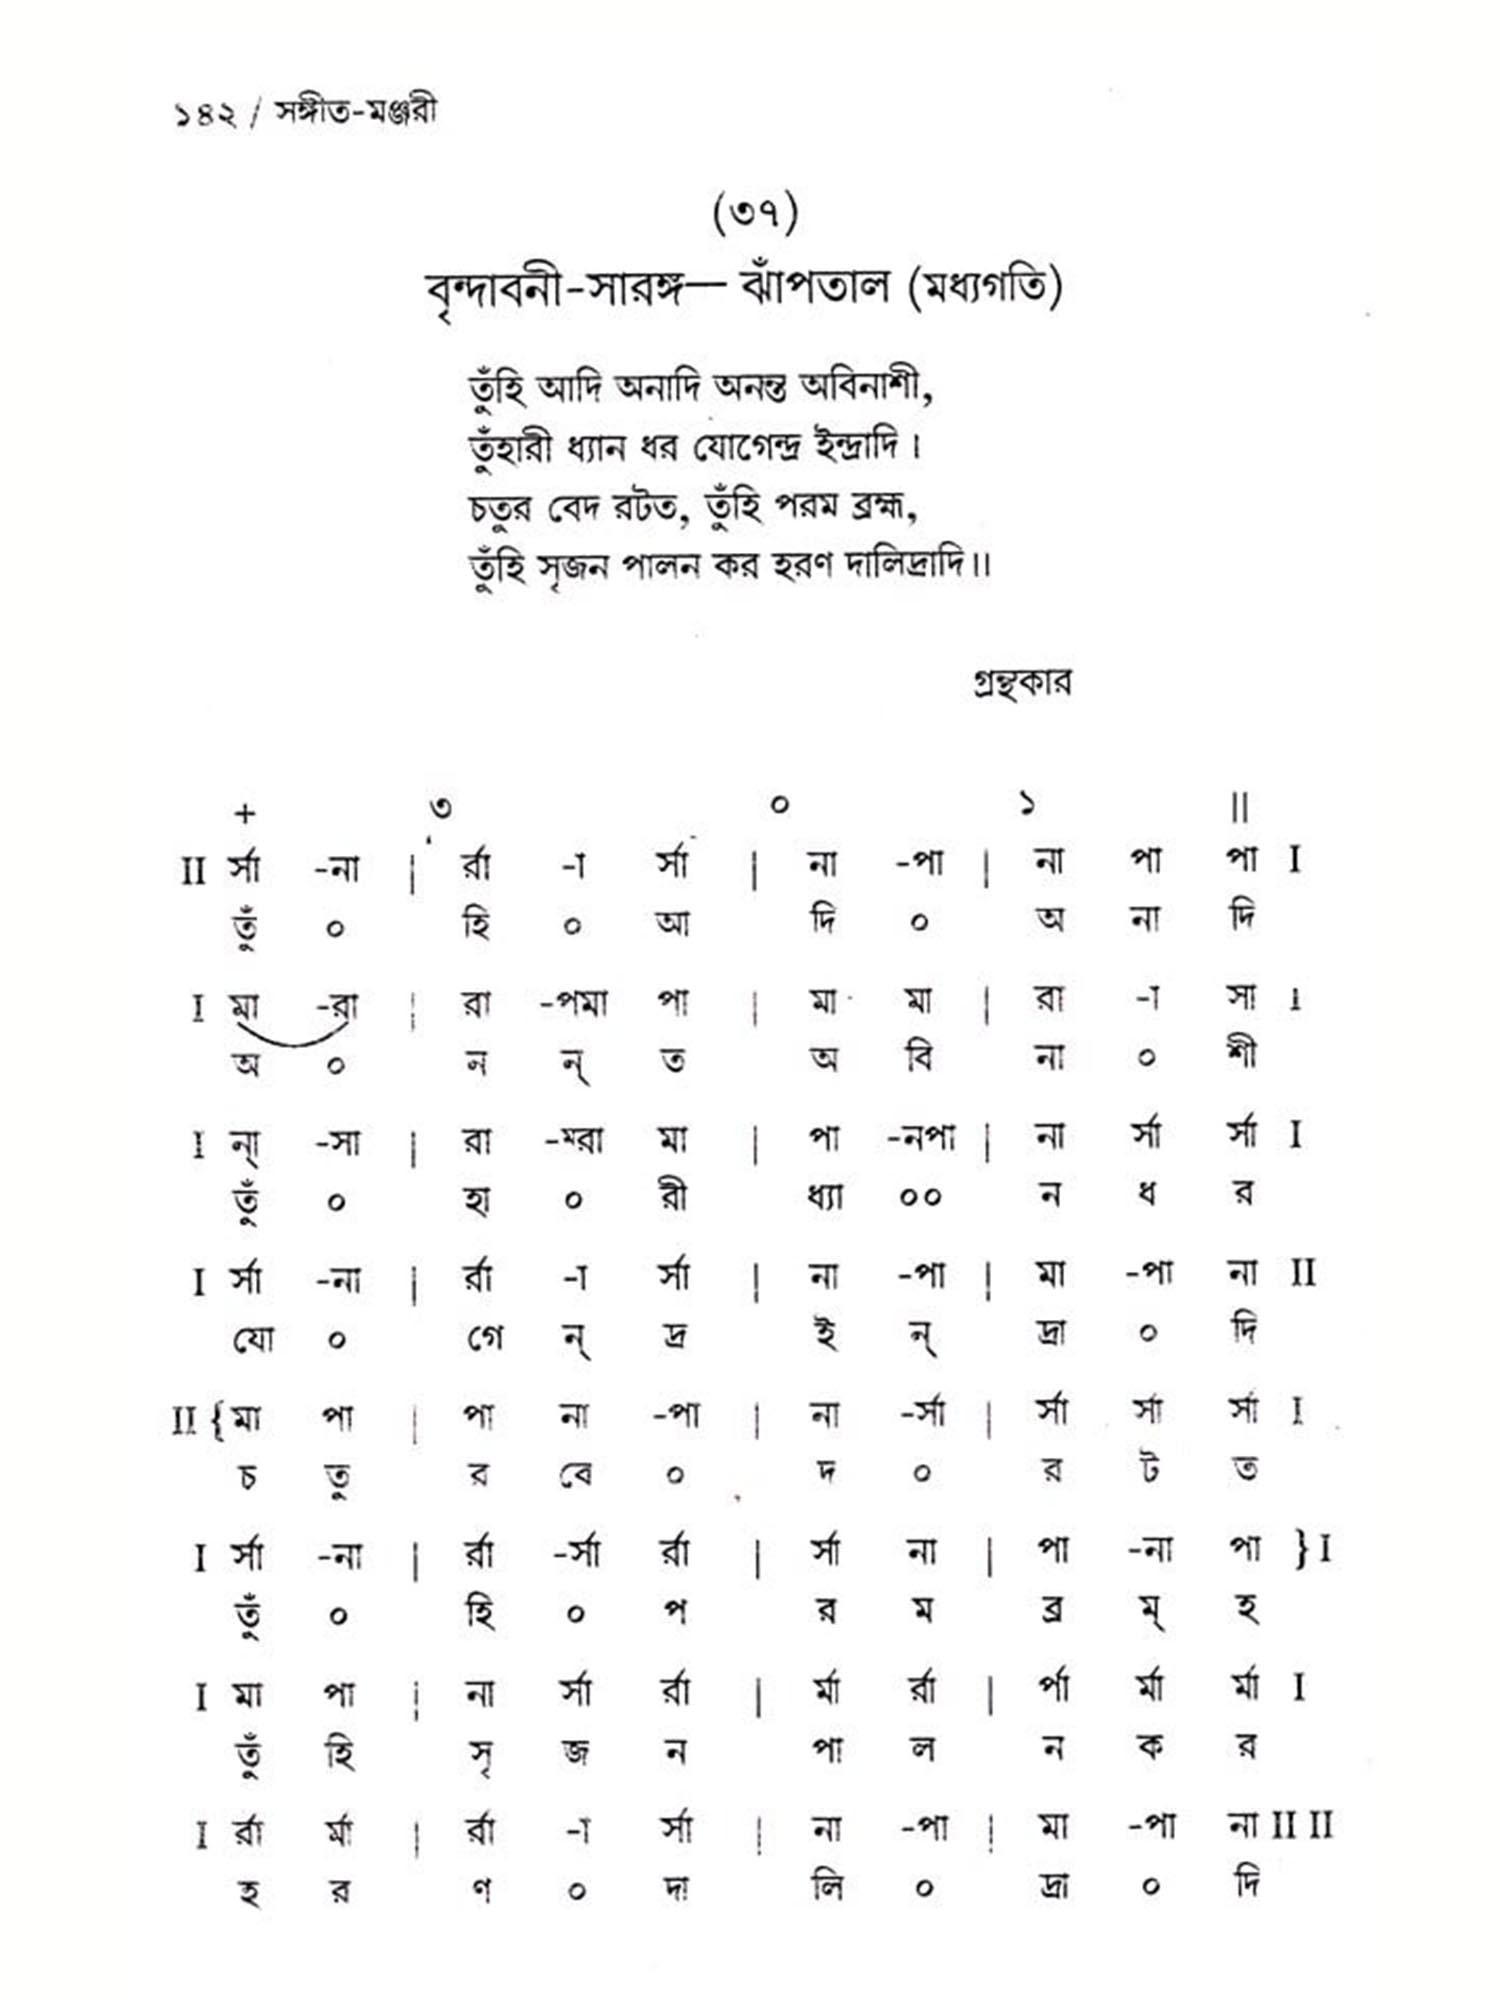 ১৪২ / সঙ্গীত-মঞ্জরী
(৩৭)
বৃন্দাবনী-সারঙ্গ— ঝাঁপতাল (মধ্যগতি)
তুঁহি আদি অনাদি অনন্ত অবিনাশী,
তুঁহারী ধ্যান ধর যোগেন্দ্র ইন্দ্রাদি ।
চতুর বেদ রটত, তুঁহি পরম ব্রহ্ম,
তুঁহি সৃজন পালন কর হরণ দালিদ্রাদি ॥
গ্রন্থকার
+ ৩ ০ ১ ||
II র্সা -না | র্রা -া র্সা | না -পা | না পা পা I
তুঁ ০ হি ০ আ দি ০ অ না দি
I মা -রা | রা -পমা পা | মা মা | রা -া সা I
অ ০ ন ন্ ত অ বি না ০ শী
I ন্া -সা | রা -মরা মা | পা -নপা | না র্সা র্সা I
তুঁ ০ হা ০ রী ধ্যা ০০ ন ধ র
I র্সা -না | র্রা -া র্সা | না -পা | মা -পা না II
যো ০ গে ন্ দ্র ই ন্ দ্রা ০ দি
II { মা পা | পা না -পা | না -র্সা | র্সা র্সা র্সা I
চ তু র বে ০ দ ০ র ট ত
I র্সা -না | র্রা -র্সা র্রা | র্সা না | পা -না পা } I
তুঁ ০ হি ০ প র ম ব্র ম্ হ
I মা পা | না র্সা র্রা | র্মা র্রা | র্পা র্মা র্মা I
তুঁ হি সৃ জ ন পা ল ন ক র
I র্রা র্মা | র্রা -া র্সা | না -পা | মা -পা না II II
হ র ণ ০ দা লি ০ দ্রা ০ দি